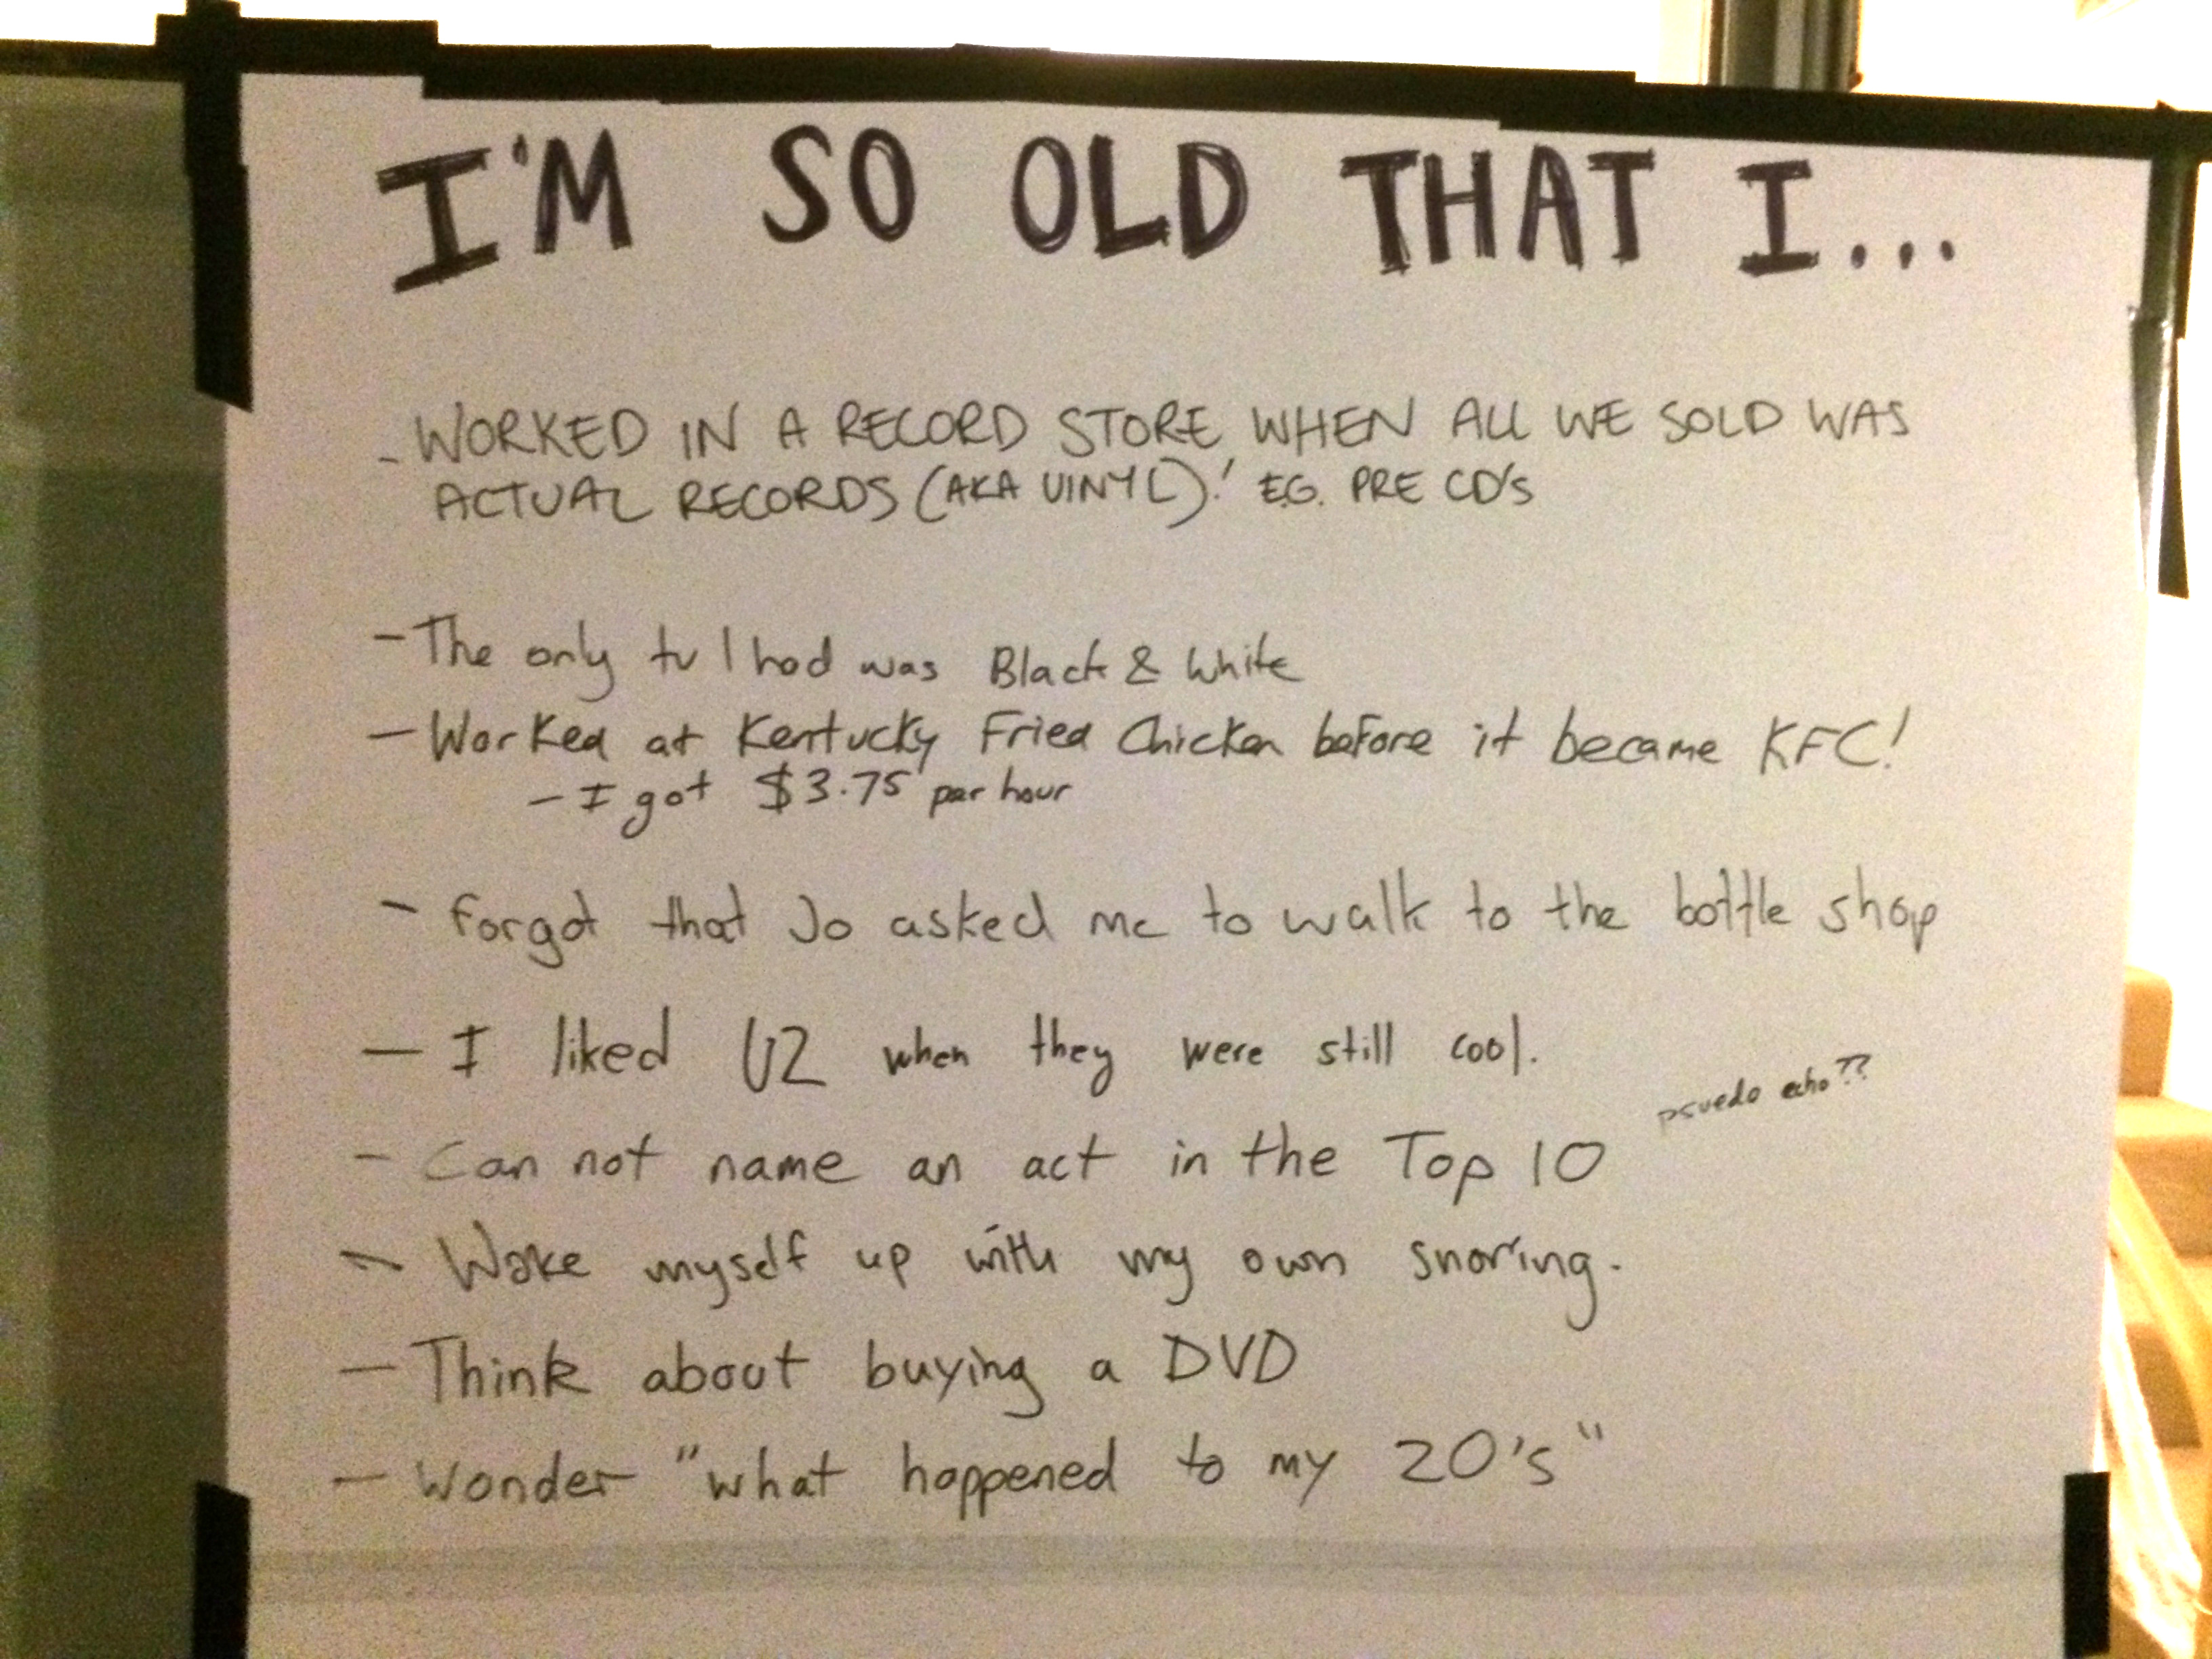 I'M SO OLD THAT I...
- WORKED IN A RECORD STORE WHEN ALL WE SOLD WAS
ACTUAL RECORDS (AKA VINYL)! E.G. PRE CD'S
- The only tv I had was Black & White
- Worked at Kentucky Fried Chicken before it became KFC!
- I got $3.75 per hour
- Forgot that Jo asked me to walk to the bottle shop
- I liked U2 when they were still cool.
psuedo echo??
- Can not name an act in the Top 10
- Wake myself up with my own snoring.
- Think about buying a DVD
- Wonder "what happened to my 20's"